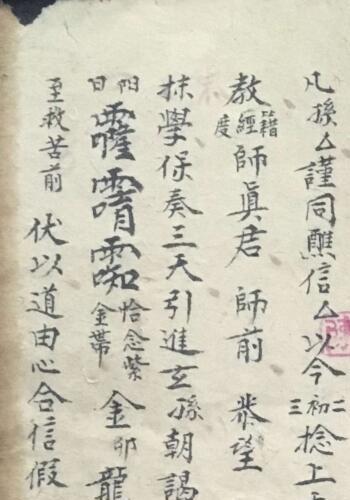 凡孫厶謹同醮信厶以今二初三捻上
教籍經度師眞君 師前 恭望
抹學保奏三天引進玄孫朝謁
阳日 恰念紫金帶 金卯龍
至救苦前 伏以道由心合信假